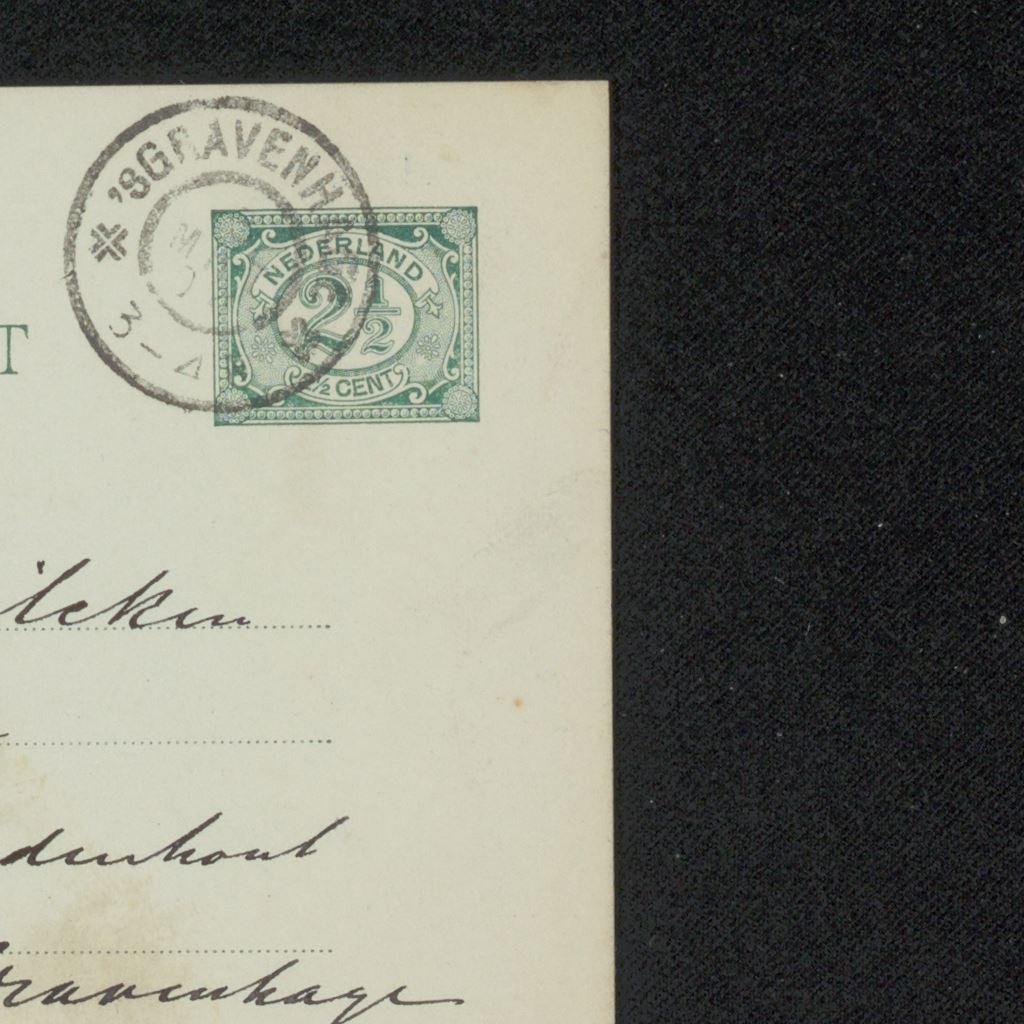 'SGRAVENH
3-4
NEDERLAND
2 1/2
1/2 CENT
T
ilcken
denhout
Gravenhage